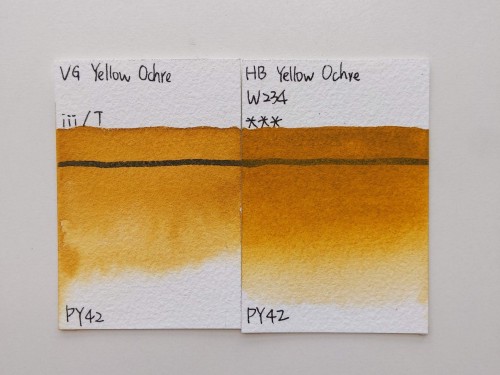 VG Yellow Ochre
iii/T
PY42
HB Yellow Ochre
W234
***
PY42